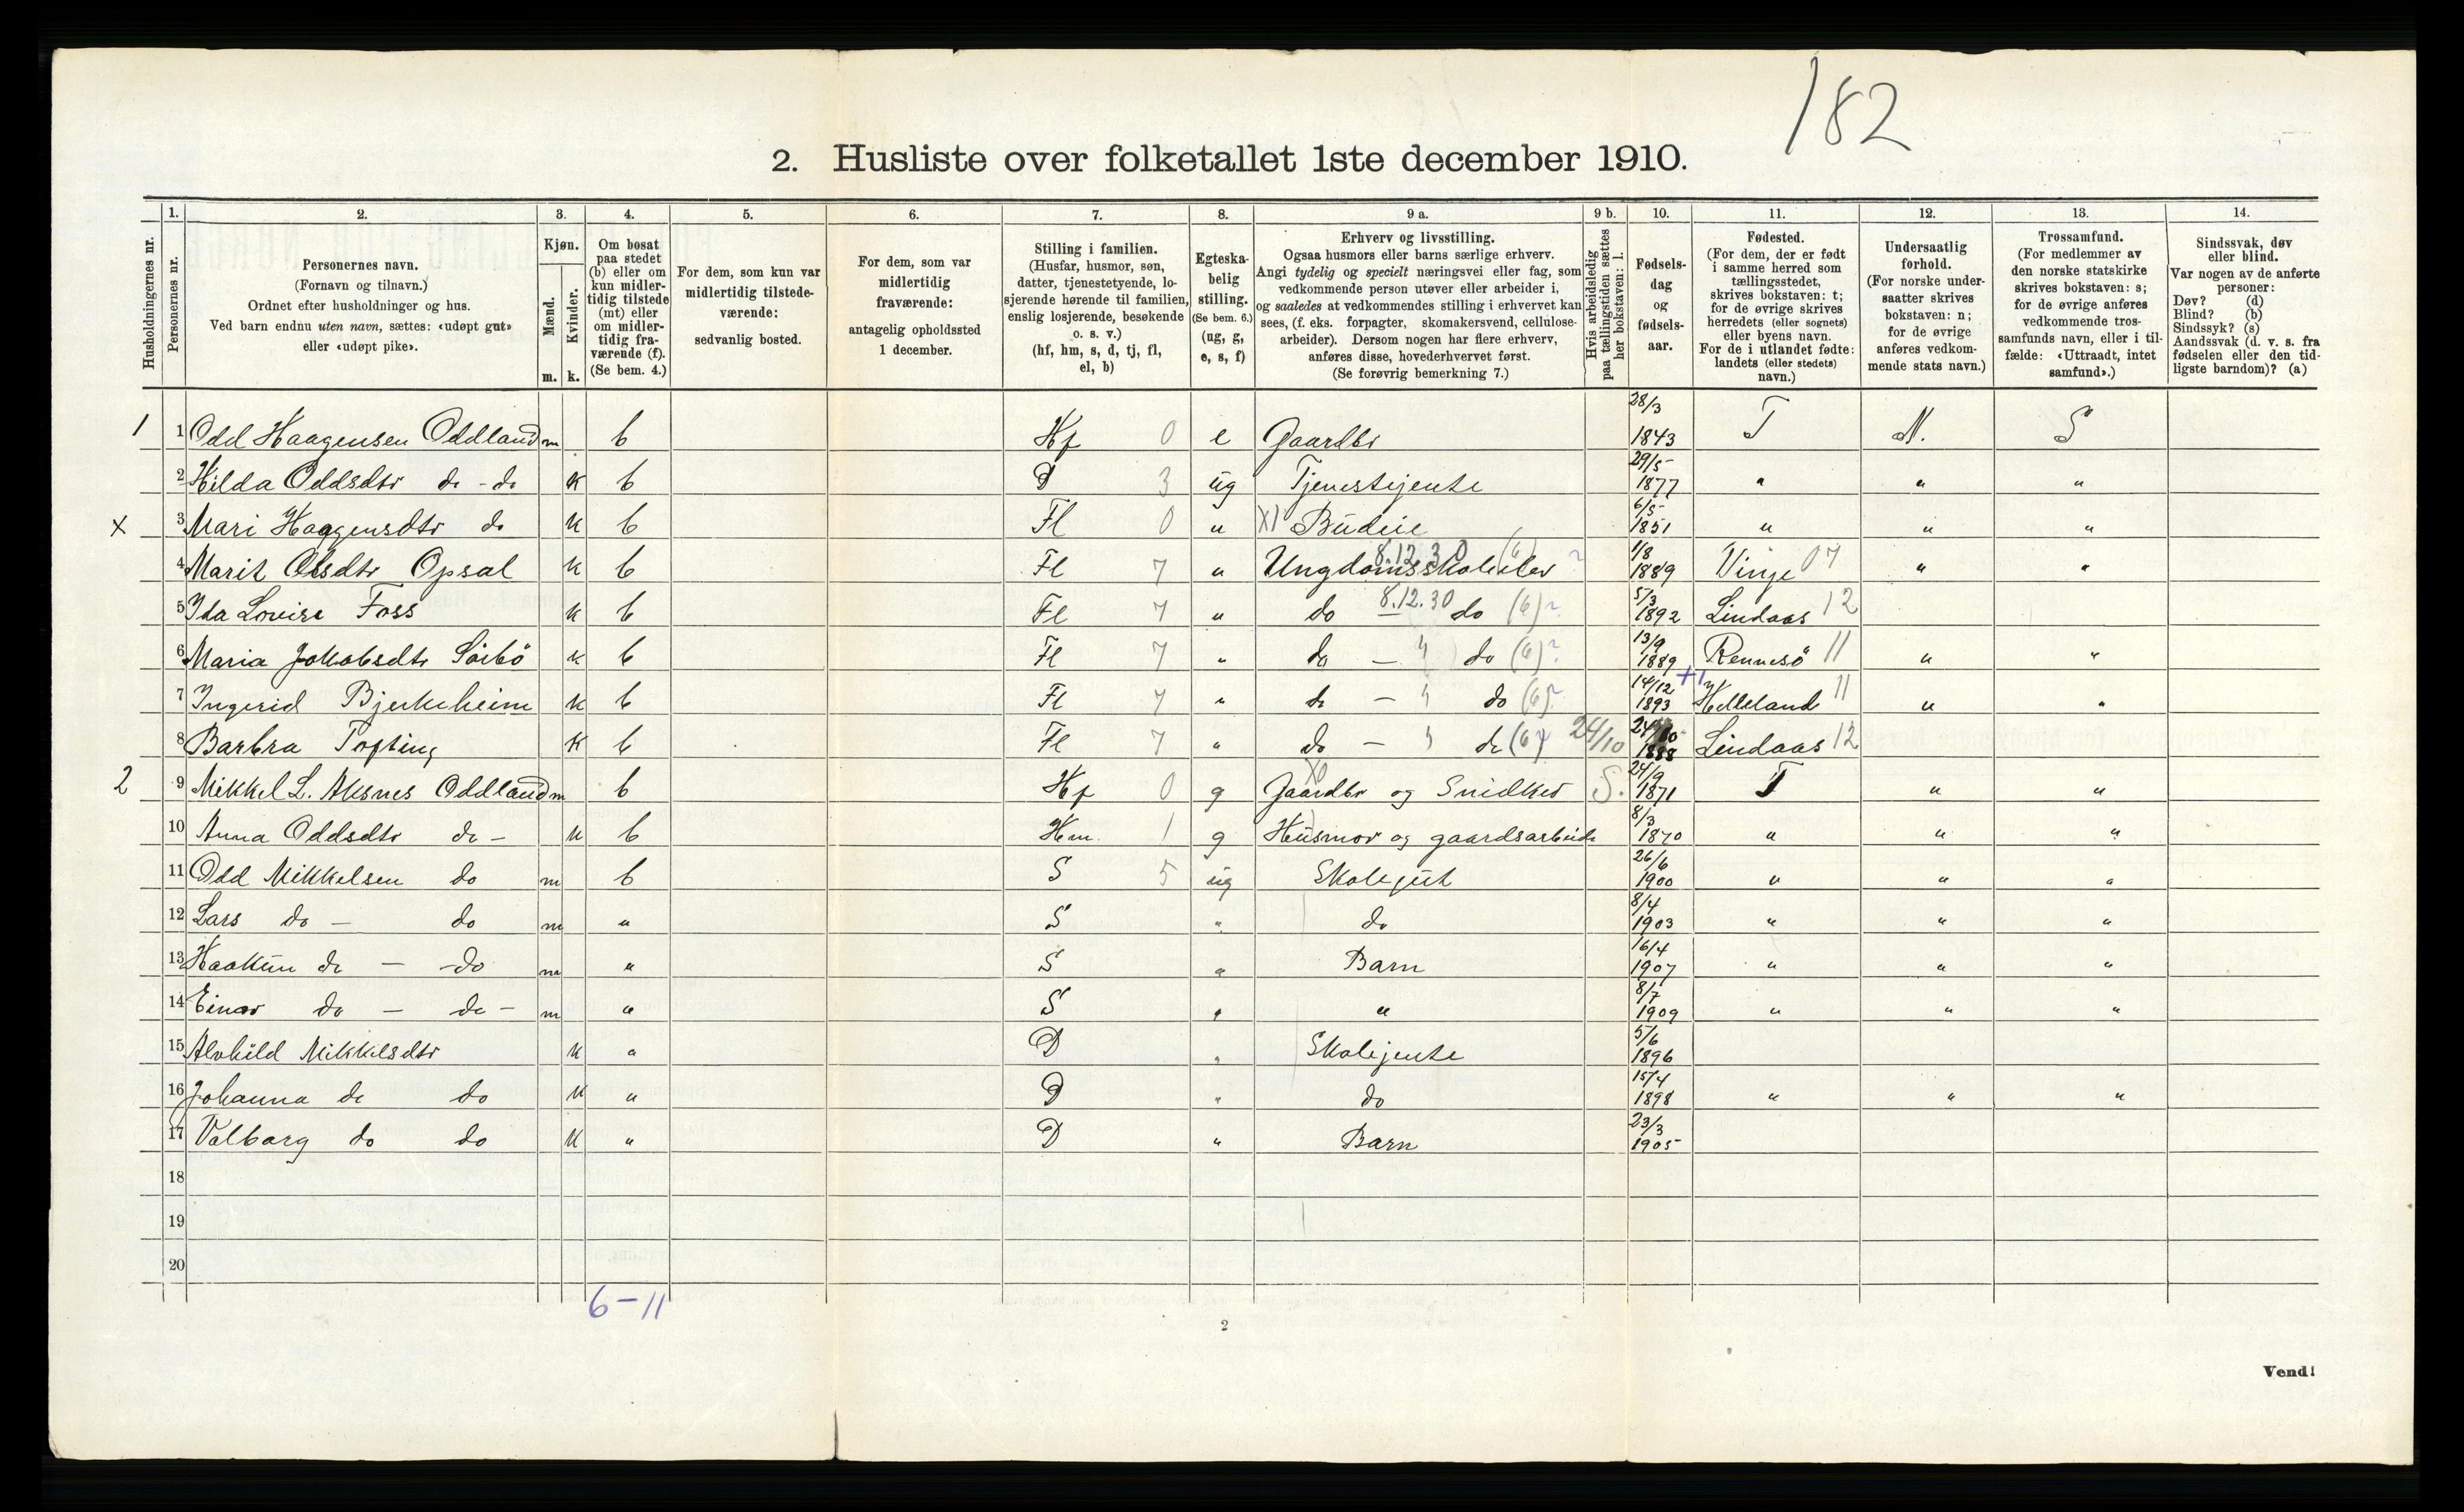 182
2. Husliste over folketallet 1ste december 1910.
Husholdningernes nr.
1.
Personernes nr.
2.
Personernes navn.
(Fornavn og tilnavn.)
Ordnet efter husholdninger og hus.
Ved barn endnu uten navn, sættes: «udøpt gut»
eller «udøpt pike».
3.
Kjøn.
Mænd.
Kvinder.
m. k.
4.
Om bosat
paa stedet
(b) eller om
kun midler-
tidig tilstede
(mt) eller
om midler-
tidig fra-
værende (f).
(Se bem. 4.)
5.
For dem, som kun var
midlertidig tilstede-
værende:
sedvanlig bosted.
6.
For dem, som var
midlertidig
fraværende:
antagelig opholdssted
1 december.
7.
Stilling i familien.
(Husfar, husmor, søn,
datter, tjenestetyende, lo-
sjerende hørende til familien,
enslig losjerende, besøkende
o. s. v.)
(hf, hm, s, d, tj, fl,
el, b)
8.
Egteska-
belig
stilling.
(Se bem. 6.)
(ug, g,
e, s, f)
9 a.
Erhverv og livsstilling.
Ogsaa husmors eller barns særlige erhverv.
Angi tydelig og specielt næringsvei eller fag, som
vedkommende person utøver eller arbeider i,
og saaledes at vedkommendes stilling i erhvervet kan
sees, (f. eks. forpagter, skomakersvend, cellulose-
arbeider). Dersom nogen har flere erhverv,
anføres disse, hovederhvervet først.
(Se forøvrig bemerkning 7.)
9 b.
Hvis arbeidsledig
paa tællingstiden sættes
her bokstaven: l.
10.
Fødsels-
dag
og
fødsels-
aar.
11.
Fødested.
(For dem, der er født
i samme herred som
tællingsstedet,
skrives bokstaven: t;
for de øvrige skrives
herredets (eller sognets)
eller byens navn.
For de i utlandet fødte:
landets (eller stedets)
navn.)
12.
Undersaatlig
forhold.
(For norske under-
saatter skrives
bokstaven: n;
for de øvrige
anføres vedkom-
mende stats navn.)
13.
Trossamfund.
(For medlemmer av
den norske statskirke
skrives bokstaven: s;
for de øvrige anføres
vedkommende tros-
samfunds navn, eller i til-
fælde: «Uttraadt, intet
samfund».)
14.
Sindssvak, døv
eller blind.
Var nogen av de anførte
personer:
Døv? (d)
Blind? (b)
Sindssyk? (s)
Aandssvak (d. v. s. fra
fødselen eller den tid-
ligste barndom)? (a)
1 1 Odd Haagensen Oddland m b Hf 0 e Gaardbr 28/3 1843 T N. S
2 Hilda Oddsdtr do - do k b D 3 ug Tjenestejente 29/5 1877 " " "
x 3 Mari Haagensdtr do k b Fl 0 " X1 Budeie 6/5 1851 " " "
4 Marit Olsdtr Opsal k b Fl 7 " Ungdomsskoleelev 8.12.30 (6) ? 1/8 1889 Vinje 07 " "
5 Ida Lovise Foss k b Fl 7 " do 8.12.30 do (6)? 5/3 1892 Lindaas 12
6 Maria Jakobsdtr Sörbö k b Fl 7 " do — " do (6)? 13/9 1889 Rennesö 11 " "
7 Ingerid Bjerkeheim k b Fl 7 " do — " do (6)? 14/12 1893 +1 Helleland 11 " "
8 Barbra Tofting k b Fl 7 " do — " do (6)? 24/10 24/10 1888 Lindaas 12
2 9 Mikkel L. Aksnes Oddland m b Hf 0 g X0 Gaardbr og Snidker S. 24/9 1871 T " "
10 Anna Oddsdtr do - k b Hm. 1 g Husmor og gaardsarbeide 8/3 1870 " " "
11 Odd Mikkelsen do m b S 5 ug Skolegut 26/6 1900 " " "
12 Lars do — do m " S " do 8/4 1903 " " "
13 Haakon do — do m " S " Barn 16/4 1907 " " "
14 Einar do — do - m " S " " 8/7 1909 " " "
15 Alvhild Mikkelsdtr k " D " Skolejente 5/6 1896
16 Johanna do do k " D " do 15/4 1898 " " "
17 Valborg do do k " D " Barn 23/3 1905
18
19
20
6 - 11
2
Vend!